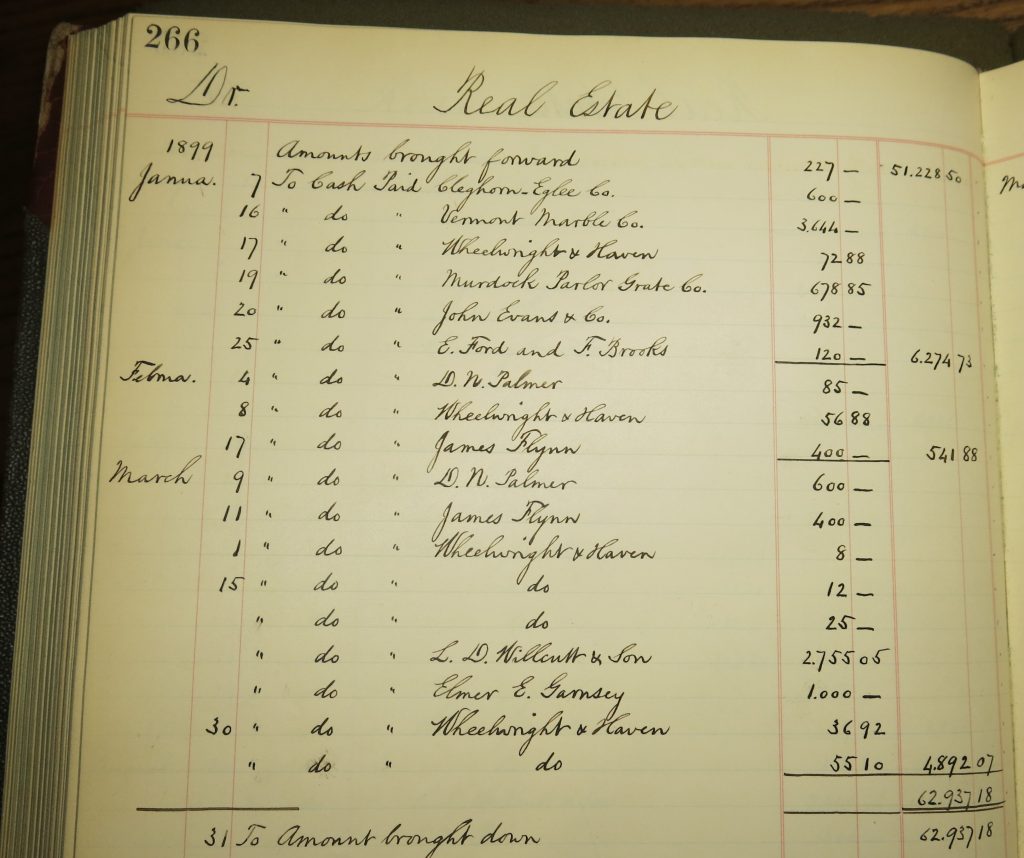 266
Dr. Real Estate
1899 Amounts brought forward 227 — 51.228 50
Janua. 7 To Cash Paid Cleghorn-Eglee Co. 600 —
16 " do " Vermont Marble Co. 3.644 —
17 " do " Wheelwright & Haven 72 88
19 " do " Murdock Parlor Grate Co. 678 85
20 " do " John Evans & Co. 932 —
25 " do " E. Ford and F. Brooks 120 — 6.274 73
Februa. 4 " do " D. N. Palmer 85 —
8 " do " Wheelwright & Haven 56 88
17 " do " James Flynn 400 — 541 88
March 9 " do " D. N. Palmer 600 —
11 " do " James Flynn 400 —
1 " do " Wheelwright & Haven 8 —
15 " do " do 12 —
" do " do 25 —
" do " L. D. Willcutt & Son 2.755 05
" do " Elmer E. Garnsey 1.000 —
30 " do " Wheelwright & Haven 36 92
" do " do 55 10 4.892 07
62.937 18
31 To Amount brought down 62.937 18